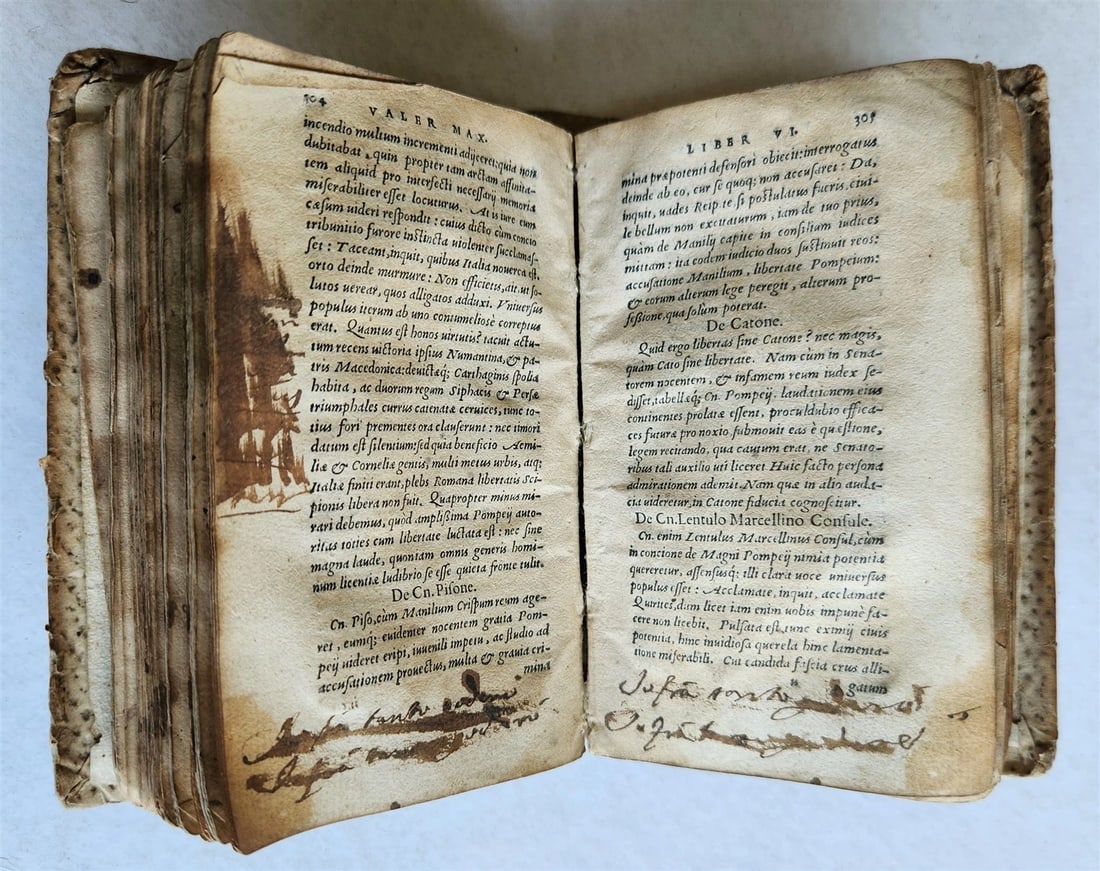 304 VALER MAX.
incendio multum incrementi adijceret: quia non
dubitabat, quin propter tam arctam affinita-
tem aliquid pro intersecti necessarij memoria
miserabiliter esset locuturus. At is iure eum
cæsum uideri respondit: cuius dicto cùm concio
tribunitio furore instincta violenter succlamas-
set: Taceant, inquit, quibus Italia nouerca est.
orto deinde murmure: Non efficietis, ait, ut so-
lutos verear, quos alligatos adduxi. Vniuersus
populus iterum ab uno contumeliosè correptus
erat. Quantus est honos virtutis? tacuit actu-
tum recens victoria ipsius Numantina, & pa-
tris Macedonica: deuictæq; Carthaginis spolia
habita, ac duorum regum Siphacis & Persæ
triumphales currus catenatæ ceruices, tunc to-
tius fori prementes ora clauserunt: nec timori
datum est silentium: sed quia beneficio Aemi-
liæ & Corneliæ gentis, multi metus urbis, atq;
Italiæ finiti erant, plebs Romana libertatis Sci-
pionis libera non fuit. Quapropter minus mi-
rari debemus, quod amplißima Pompeij autо-
ritas toties cum libertate luctata est: nec sine
magna laude, quoniam omnis generis homi-
num licentiæ ludibrio se esse quieta fronte tulit.
De Cn. Pisone.
Cn. Piso, cùm Manilium Crispum reum age-
ret, eumq; euidenter nocentem gratia Pom-
peij uideret eripi, iuuenili impetu, ac studio ad
accusationem prouectus, multa & grauia cri-
mina
LIBER VI. 305
mina præpotenti defensori obiecit: interrogatus
deinde ab eo, cur se quoq; non accusaret: Da,
inquit, uades Reip. te si postulatus fueris, ciui-
le bellum non excitaturum, iam de tuo prius,
quàm de Manilij capite in consilium iudices
mittam: ita eodem iudicio duos sustinuit reos:
accusatione Manilium, libertate Pompeium:
& eorum alterum lege peregit, alterum pro-
feßione, qua solum poterat.
De Catone.
Quid ergo libertas sine Catone? nec magis,
quàm Cato sine libertate. Nam cùm in Sena-
torem nocentem, & infamem reum iudex se-
disset, tabellæq; Cn. Pompeij, laudationem eius
continentes prolatæ essent, proculdubio effica-
ces futuræ pro noxio, submouit eas è quæstione,
legem recitando, qua cautum erat, ne Senato-
ribus tali auxilio uti liceret. Huic facto persona
admirationem ademit. Nam quæ in alio auda-
cia uideretur, in Catone fiducia cognoscitur.
De Cn. Lentulo Marcellino Consule.
Cn. enim Lentulus Marcellinus Consul, cùm
in concione de Magni Pompeij nimia potentia
quereretur, assensusq; illi clara uoce uniuersus
populus esset: Acclamate, inquit, acclamate
Quirites, dum licet: iam enim uobis impunè fa-
cere non licebit. Pulsata est tunc eximij ciuis
potentia, hinc inuidiosa querela hinc lamenta-
tione miserabili. Cui candida fascia crus alli-
gatum